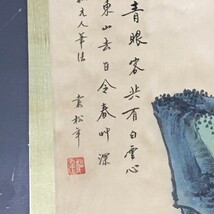 青眼客共有白雲心
東山去日令春草深
元人筆法
袁松年